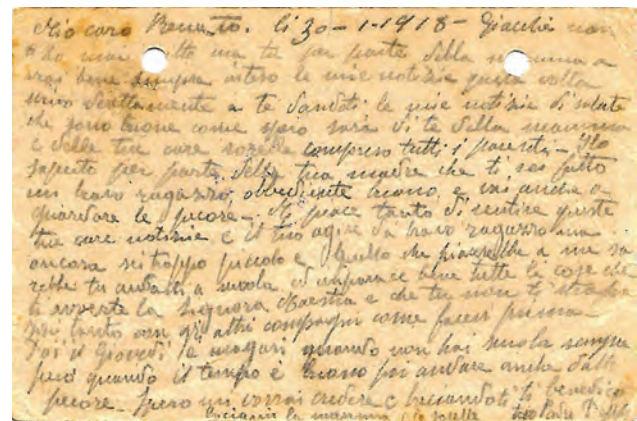 Mio caro Renato. li 30-1-1918- Giacchè non
ti ho mai scritto ma tu per parte della mamma a
vrai bene sempre inteso le mie notizie questa volta
scrivo direttamente a te dandoti le mie notizie di salute
che sono buone come spero sarà di te della mamma
e delle tue care sorelle compreso tutti i parenti - Ho
saputo per parte della tua madre che ti sei fatto
un bravo ragazzo, obbediente buono, e vai anche a
guardare le pecore - Mi piace tanto di sentire queste
tue care notizie e il tuo agire da bravo ragazzo ma
ancora sei troppo piccolo e quello che piacerebbe a me sa
rebbe tu andassi a scuola, ed imparare bene tutte le cose che
ti avverte la Signora Maestra e che tu non ti
tanto con gli altri compagni come facevi prima -
Poi il Giovedì o magari quando non hai scuola sempre
però quando il tempo è buono puoi andare anche dalle
pecore - Spero mi vorrai credere e baciandoti ti benedico
la mamma e le sorelle tuo Padre